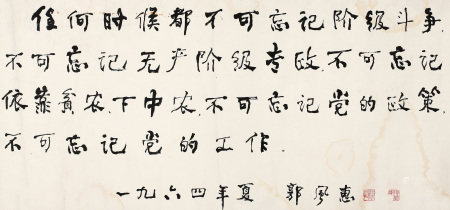 任何时候都不可忘记阶级斗争.
不可忘记无产阶级专政.不可忘记
依靠贫农.下中农.不可忘记党的政策.
不可忘记党的工作.
一九六四年夏 郭风惠